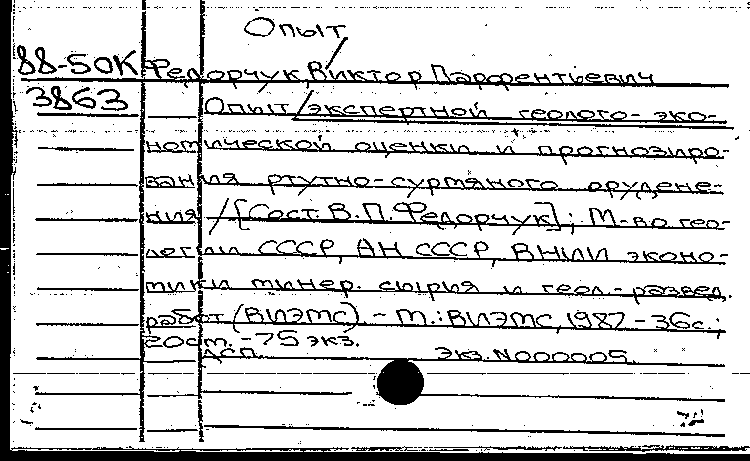 Опыт
88-50К Федорчук, Виктор Парфентьевич
3863 Опыт экспертной геолого-эко-
номической оценки и прогнозиро-
вания ртутно-сурмяного оруденe-
ния / [Сост. В.П. Федорчук]; М-во гео-
логии СССР, АН СССР, ВНИИ эконо-
мики минер. сырья и геол.-развед.
работ (ВИЭМС). - М.: ВИЭМС, 1987 - 36с.;
20см. - 75 экз.
ДСП. Экз. N000005.